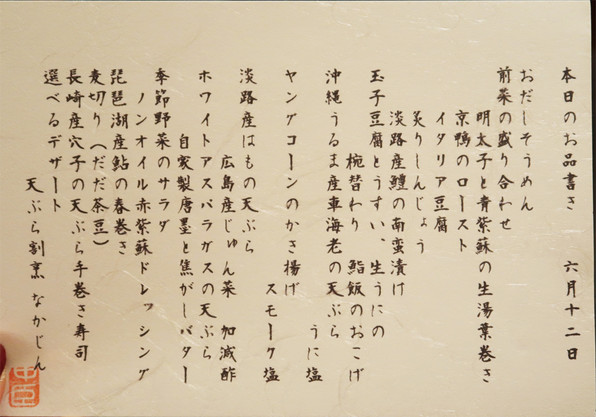 本日のお品書き 六月十二日
おだしそうめん
前菜の盛り合わせ
明太子と青紫蘇の生湯葉巻き
京鴨のロースト
イタリア豆腐
炙りしんじょう
淡路産鱧の南蛮漬け
玉子豆腐とうすい、生うにの
椀替わり 鮨飯のおこげ
沖縄うるま産車海老の天ぷら
うに塩
ヤングコーンのかき揚げ
スモーク塩
淡路産はもの天ぷら
広島産じゅん菜 加減酢
ホワイトアスパラガスの天ぷら
自家製唐墨と焦がしバター
季節野菜のサラダ
ノンオイル赤紫蘇ドレッシング
琵琶湖産鮎の春巻き
麦切り(だだ茶豆)
長崎産穴子の天ぷら手巻き寿司
選べるデザート
天ぷら割烹 なかじん